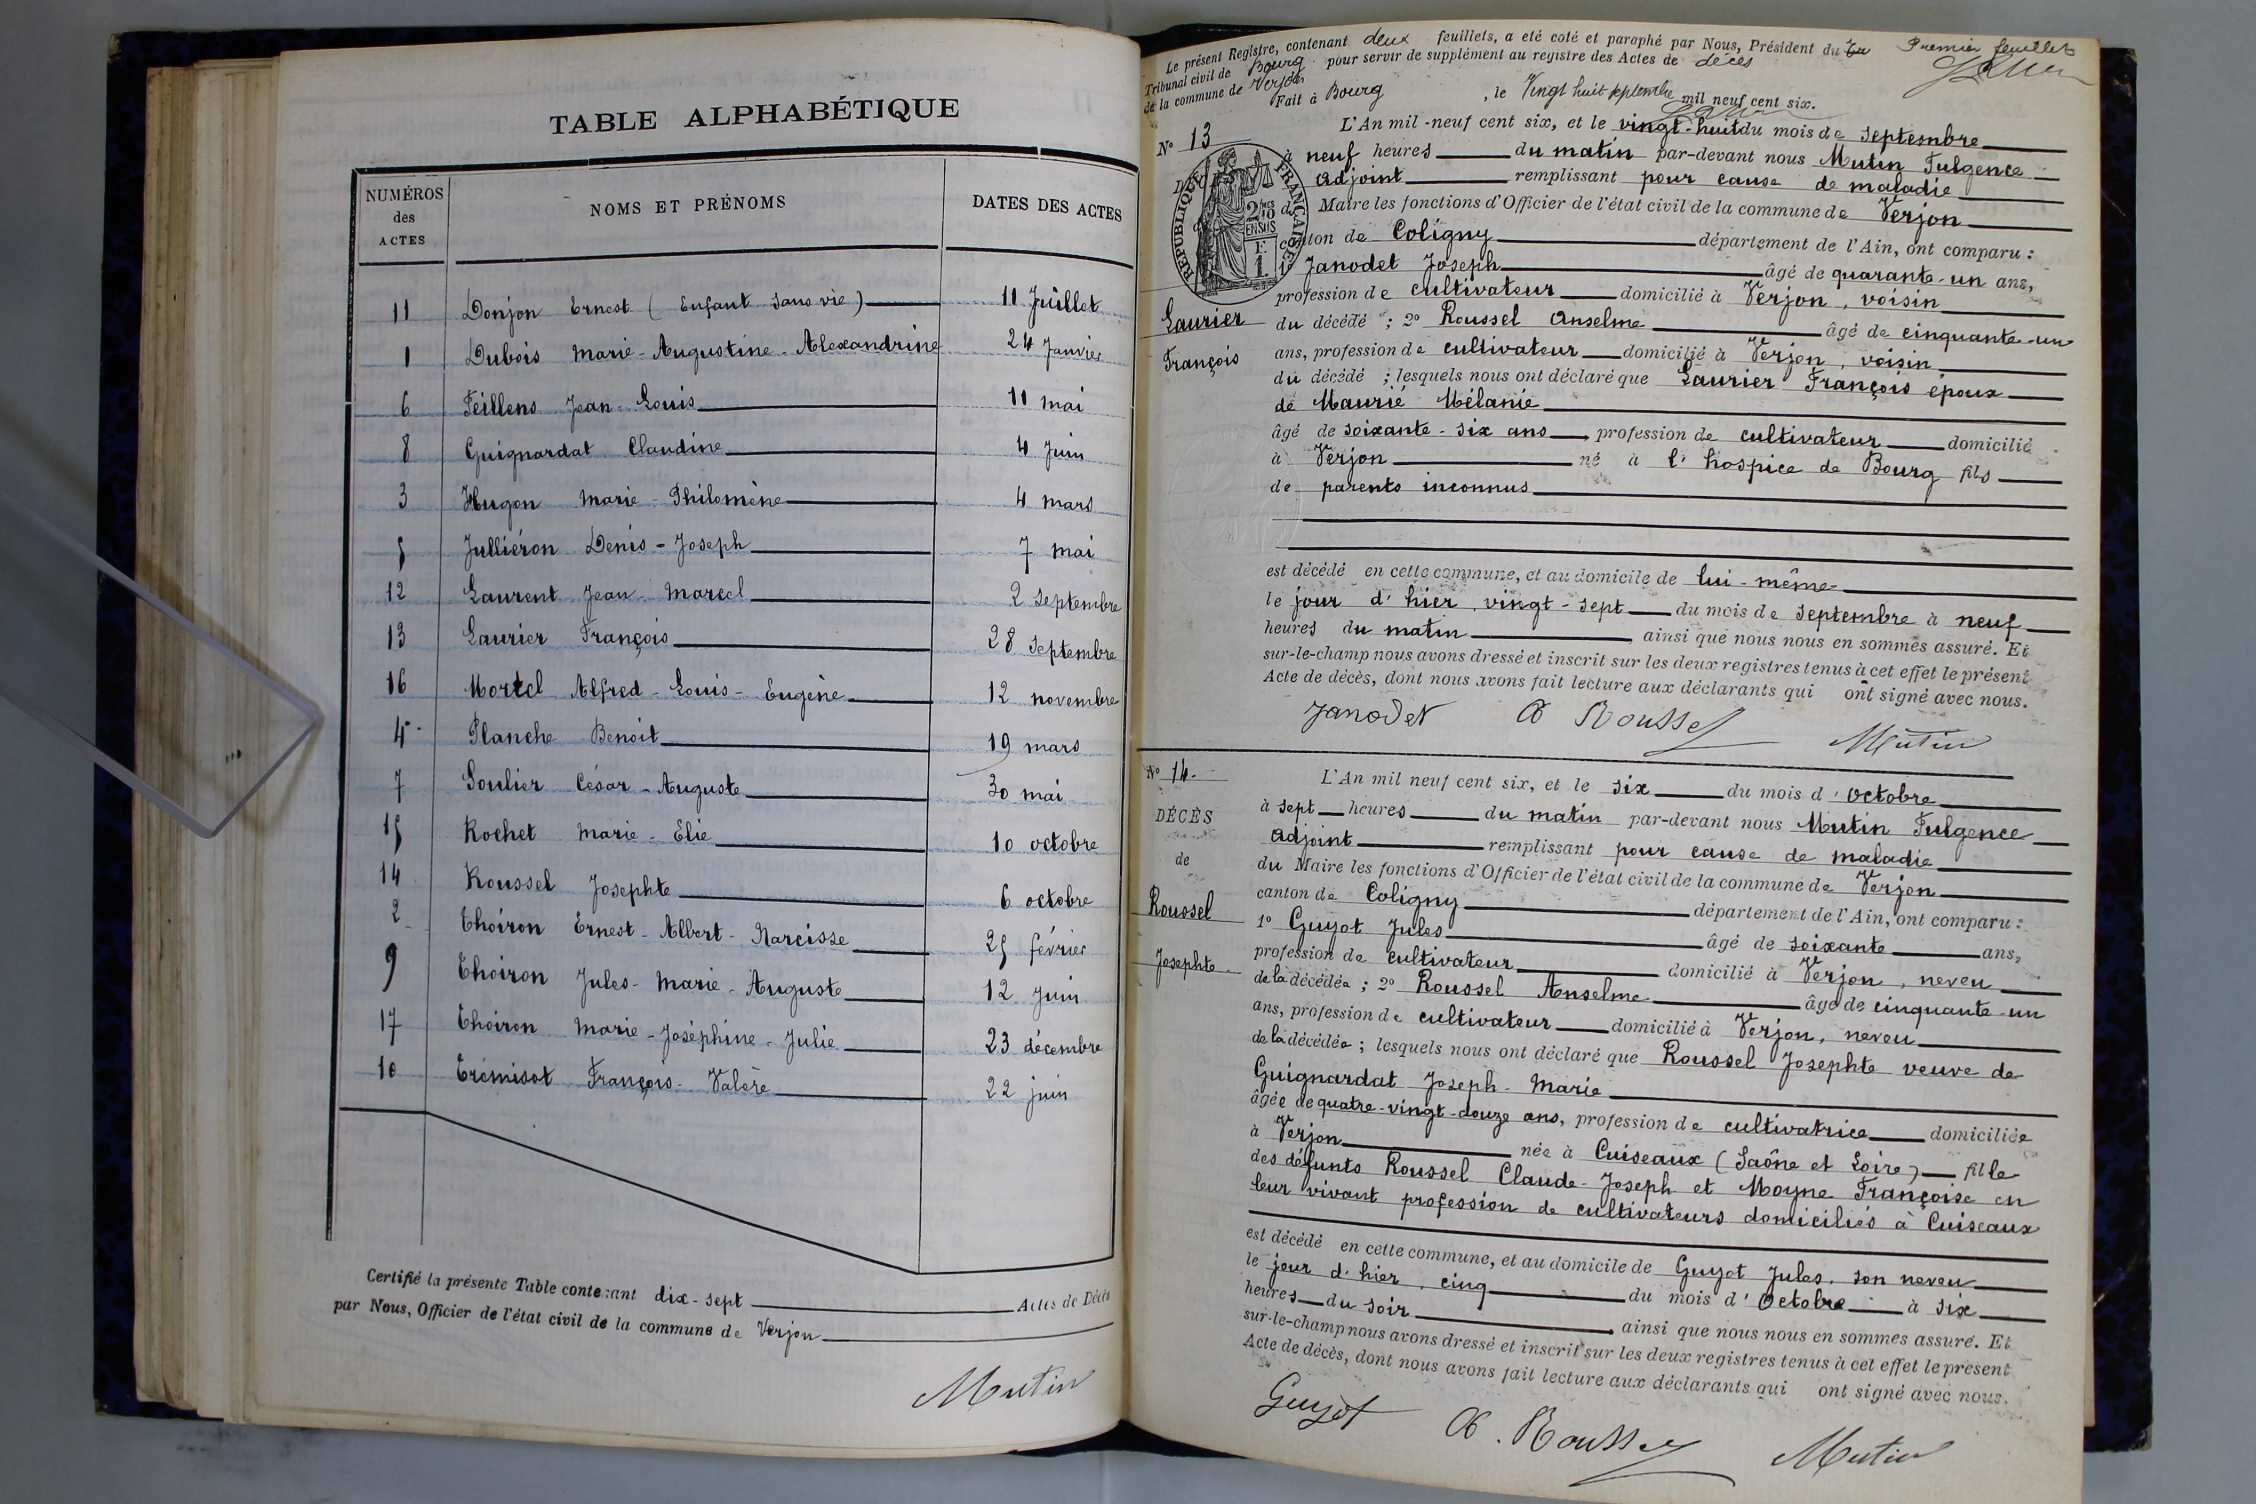 TABLE ALPHABÉTIQUE
NUMÉROS des ACTES NOMS ET PRÉNOMS DATES DES ACTES
11 Donjon Ernest ( Enfant sans vie ) 11 Juillet
1 Dubois Marie-Augustine-Alexandrine 24 Janvier
6 Feillens Jean-Louis 11 mai
8 Guignardat Claudine 4 Juin
3 Hugon Marie-Philomène 4 mars
5 Julliéron Denis-Joseph 7 mai
12 Laurent Jean-Marcel 2 septembre
13 Laurier François 28 septembre
16 Mortel Alfred-Louis-Eugène 12 novembre
4 Planche Benoit 19 mars
7 Soulier César-Auguste 30 mai
15 Rochet Marie-Elie 10 octobre
14 Roussel Josephte 6 octobre
2 Thoiron Ernest-Albert-Narcisse 25 février
9 Thoiron Jules-Marie-Auguste 12 juin
17 Thoiron Marie-Joséphine-Julie 23 décembre
10 Trémisot François-Valère 22 juin
Certifié la présente Table contenant dix-sept Actes de Décès
par Nous, Officier de l'état civil de la commune de Verjon
Mutin
Premier feuillet
Le présent Registre, contenant deux feuillets, a eté coté et paraphé par Nous, Président du
Tribunal civil de Bourg pour servir de supplément au registre des Actes de décès
de la commune de Verjon
Fait à Bourg , le Vingt huit septembre mil neuf cent six.
N° 13
L'An mil-neuf cent six, et le vingt-huit du mois de septembre
à neuf heures du matin par-devant nous Mutin Fulgence
adjoint remplissant pour cause de maladie
du Maire les fonctions d'Officier de l'état civil de la commune de Verjon
canton de Coligny département de l'Ain, ont comparu :
1° Janodet Joseph âgé de quarante-un ans,
profession de cultivateur domicilié à Verjon, voisin
Laurier
François
du décédé ; 2° Roussel Anselme âgé de cinquante-un
ans, profession de cultivateur domicilié à Verjon, voisin
du décédé ; lesquels nous ont déclaré que Laurier François époux
de Maurié Mélanie
âgé de soixante-six ans, profession de cultivateur domicilié
à Verjon né à l'hospice de Bourg fils
de parents inconnus
est décédé en cette commune, et au domicile de lui-même
le jour d'hier, vingt-sept du mois de septembre à neuf
heures du matin ainsi que nous nous en sommes assuré. Et
sur-le-champ nous avons dressé et inscrit sur les deux registres tenus à cet effet le présent
Acte de décès, dont nous avons fait lecture aux déclarants qui ont signé avec nous.
Janodet A Roussel Mutin
RÉPUBLIQUE FRANÇAISE
N° 14.
DÉCÈS
de
Roussel
Josephte
L'An mil neuf cent six, et le six du mois d'octobre
à sept heures du matin par-devant nous Mutin Fulgence
adjoint remplissant pour cause de maladie
du Maire les fonctions d'Officier de l'état civil de la commune de Verjon
canton de Coligny département de l'Ain, ont comparu :
1° Guyot Jules âgé de soixante ans,
profession de cultivateur domicilié à Verjon, neveu
de la décédée ; 2° Roussel Anselme âgé de cinquante-un
ans, profession de cultivateur domicilié à Verjon, neveu
de la décédée ; lesquels nous ont déclaré que Roussel Josephte veuve de
Guignardat Joseph-Marie
âgée de quatre-vingt-douze ans, profession de cultivatrice domiciliée
à Verjon née à Cuiseaux (Saône et Loire) fille
des défunts Roussel Claude-Joseph et Moyne Françoise en
leur vivant profession de cultivateurs domiciliés à Cuiseaux
est décédé en cette commune, et au domicile de Guyot Jules, son neveu
le jour d'hier, cinq du mois d'octobre à six
heures du soir ainsi que nous nous en sommes assuré. Et
sur-le-champ nous avons dressé et inscrit sur les deux registres tenus à cet effet le présent
Acte de décès, dont nous avons fait lecture aux déclarants qui ont signé avec nous.
Guyot A. Roussel Mutin